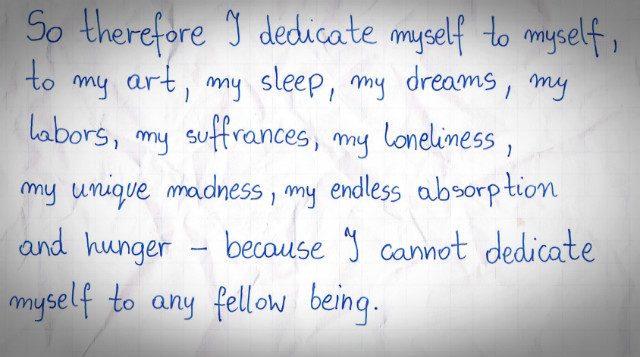 So therefore I dedicate myself to myself,
to my art, my sleep, my dreams, my
labors, my suffrances, my loneliness,
my unique madness, my endless absorption
and hunger – because I cannot dedicate
myself to any fellow being.